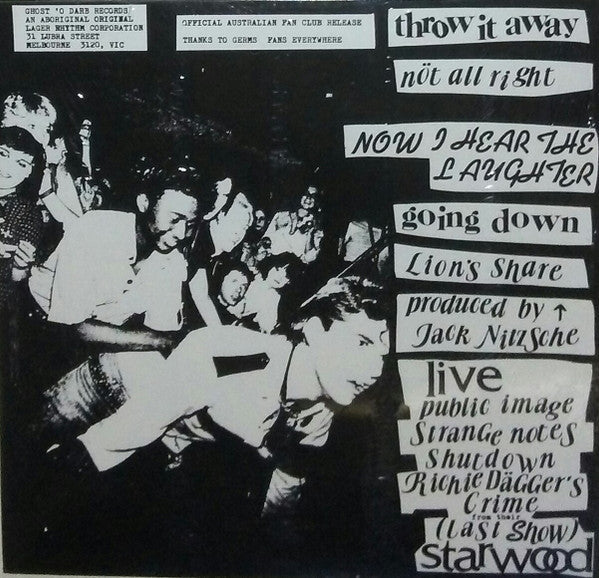 GHOST 'O DARB RECORDS
AN ABORIGINAL ORIGINAL
LAGER RHYTHM CORPORATION
31 LUBRA STREET
MELBOURNE 3120, VIC
OFFICIAL AUSTRALIAN FAN CLUB RELEASE
THANKS TO GERMS FANS EVERYWHERE
throw it away
nöt all right
NOW I HEAR THE
LAUGHTER
going down
Lion's Share
produced by ↑
Jack NitZSche
live
public image
StranGe notes
Shutdown
RichieDäGGer's
Crime
from their
(Last Show)
starwood